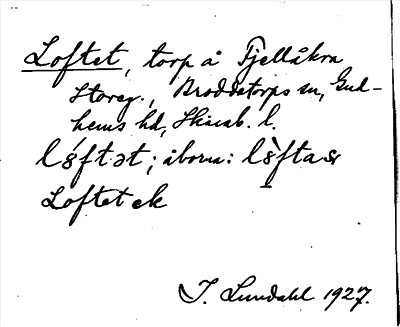 Loftet, torp å Fjellåkra
Storeg., Broddetorps sn, Gud-
hems hd, Skarab. l.
lóftət; åborna: lòftaʀ
Loftet ek
I. Lundahl 1927.